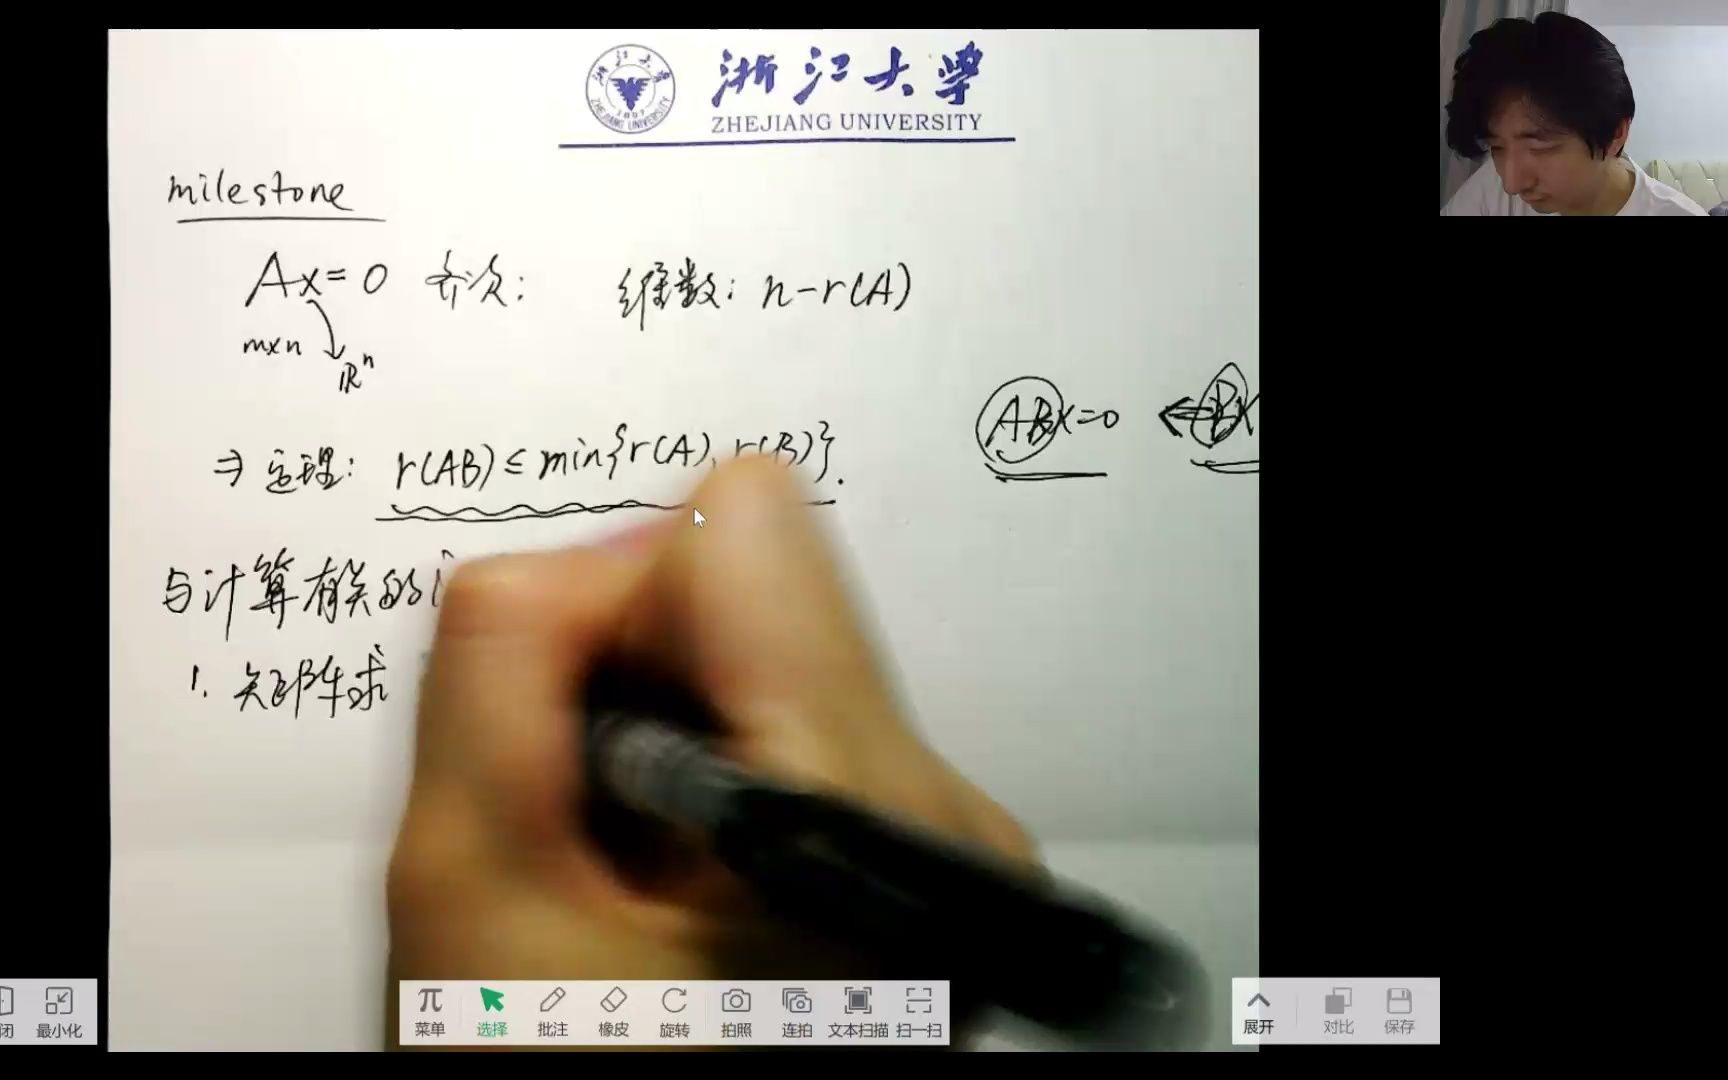 浙江大学
ZHEJIANG UNIVERSITY
milestone
Ax=0 齐次: 维数: n-r(A)
m×n
ℝⁿ
ABx=0 ⇐ Bx
⇒ 定理: r(AB)≤min{r(A), r(B)}.
与计算有关的
1. 矩阵求
闭 最小化
菜单 选择 批注 橡皮 旋转 拍照 连拍 文本扫描 扫一扫
展开 对比 保存